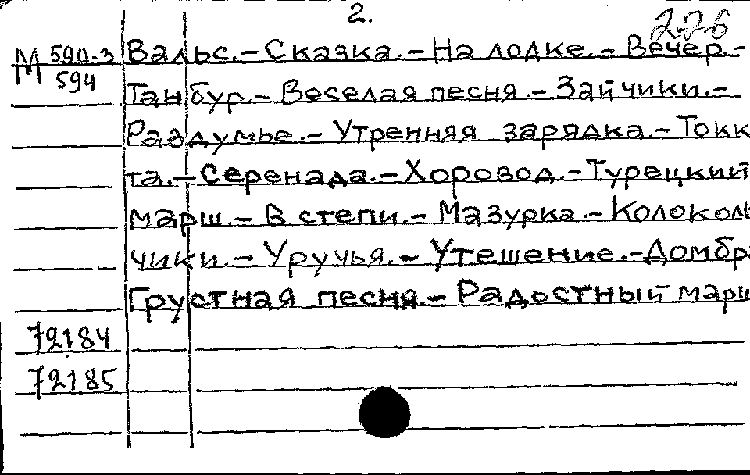 2.
226
М 590-3 Вальс.-Сказка.-На лодке.-Вечер.-
594 Танбур.-Веселая песня.-Зайчики.-
Раздумье.-Утренняя зарядка.-Токк
та.-Серенада.-Хоровод.-Турецкий
марш.-В степи.-Мазурка.-Колоколь
чики.-У ручья.-Утешение.-Домбра
Грустная песня.-Радостный марш
72184
72185